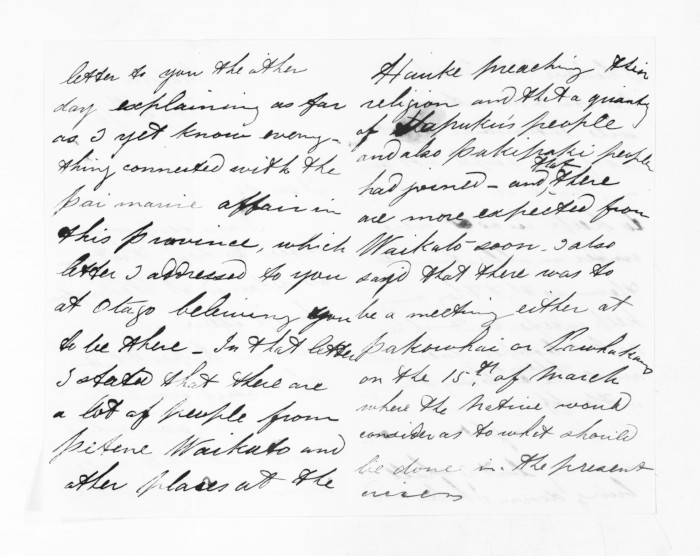 letter to you the other
day explaining as far
as I yet know every-
thing connected with the
Pai marire affair in
this Province, which
letter I addressed to you
at Otago believing you
to be there - In that letter
I stated that there are
a lot of people from
Petene Waikato and
other places at the
Hauke preaching their
religion and that a quantity
of Hapuku's people
and also Pakipaki people
had joined - and that there
are more expected from
Waikato soon. I also
said that there was to
be a meeting either at
Pakowhai or
on the 15th of March
where the Native would
consider as to what should
be done in the present
crises